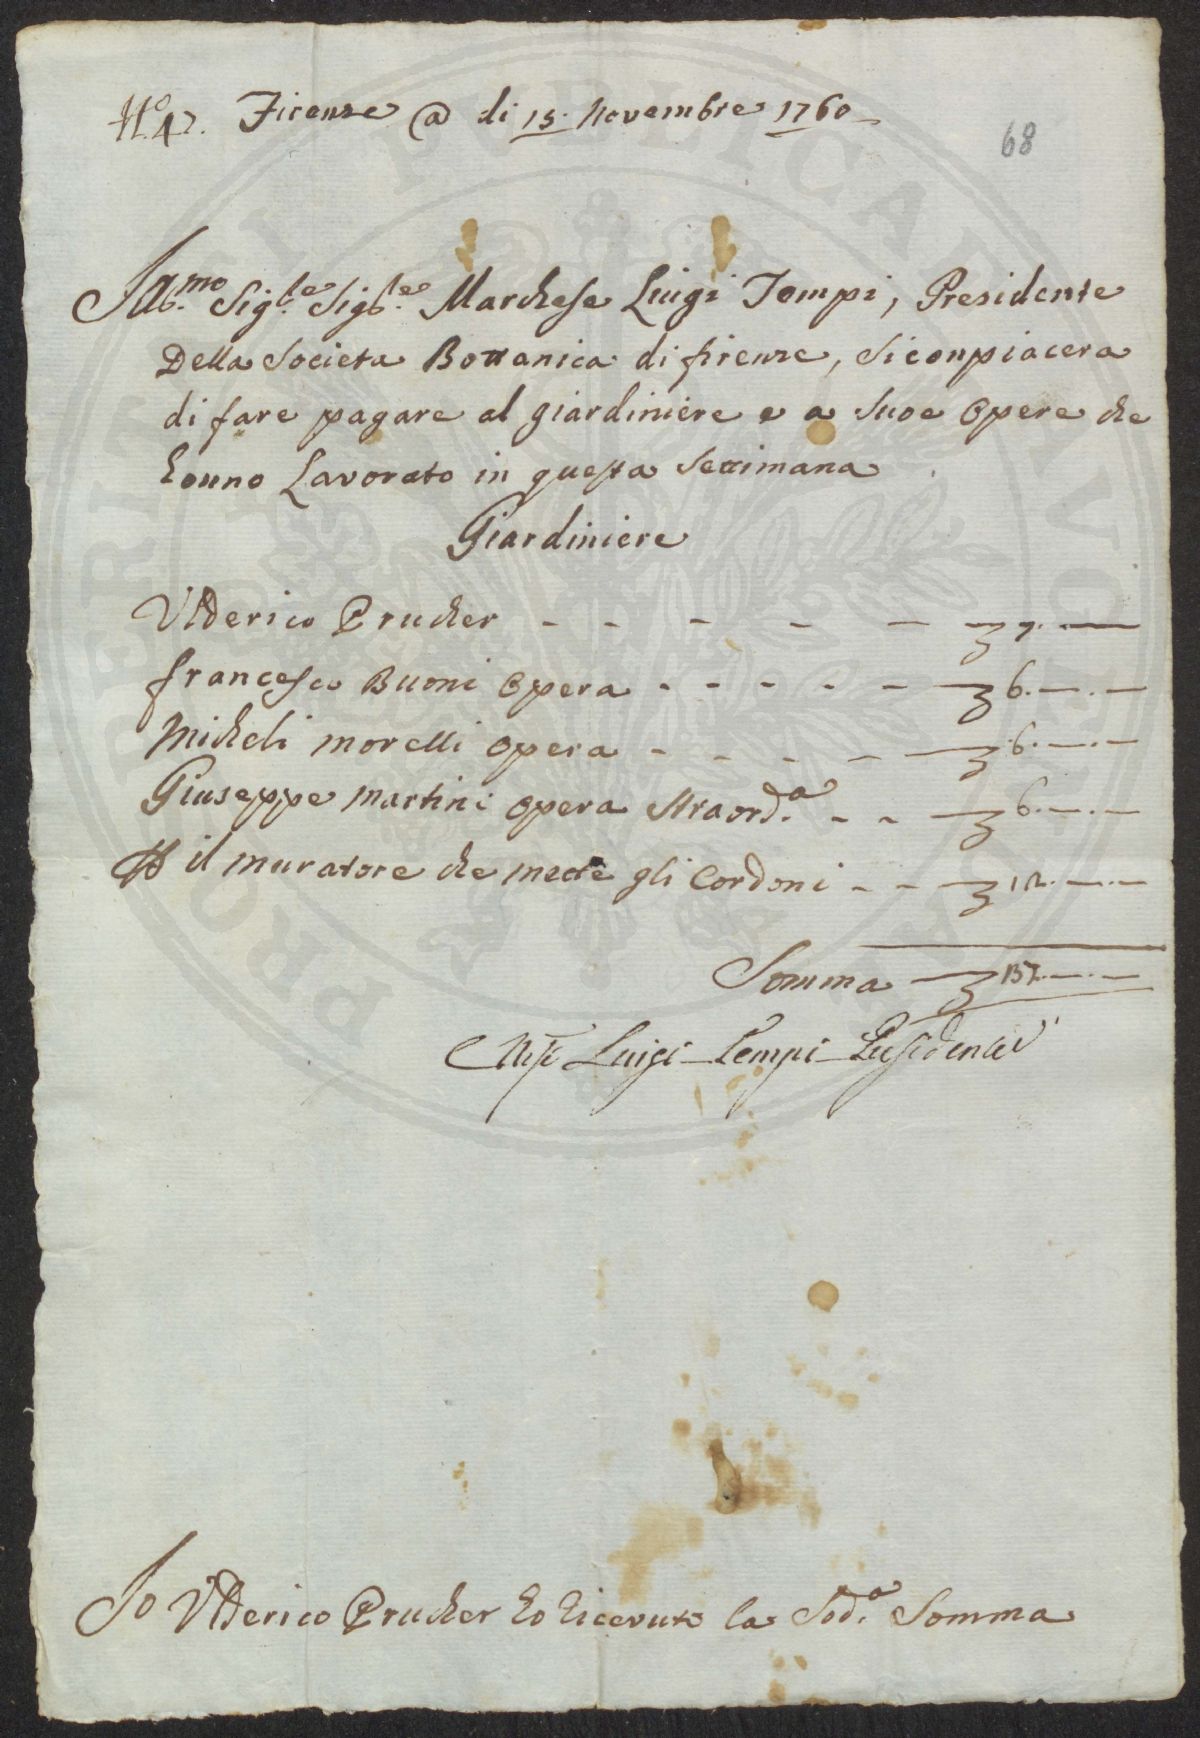 N.º 47. Firenze @ di 15. Novembre 1760
68
Ill.mo Sig.le Sig.le Marchese Luigi Tempi, Presidente
Della Societa Bottanica di firenze, Si conpiacera
di fare pagare al giardiniere e a Suoe Opere che
honno Lavorato in questa Settimana
Giardiniere
Ulderico Prucher - - - - - 7. —
francesco Buoni Opera - - - - - 6. —.—
Micheli morelli opera - - - - 6. —.—
Giuseppe martini opera Straord.a - - 6. —.—
il muratore che mette gli Cordoni - - 12. —.—
Somma
Luigi Tempi Presidente
Io Ulderico Prucher ho ricevuto la Sod.a Somma
PROPERI PUBLICAE